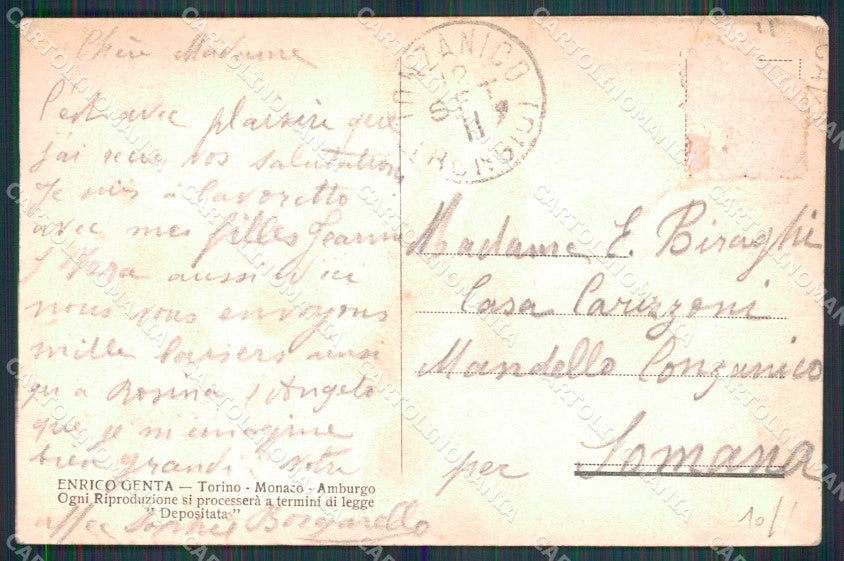 Chère Madame
C'est avec plaisire que
j'ai reçu vos salutations
Je suis à Cavoretto
avec mes filles Jeanne
aussi d'ici
nous vous envoyons
mille baisers aussi
qu'a Rosina Angelo
que je m'imagine
bien grandi. Votre
aff.ce Sophie
ENRICO GENTA — Torino - Monaco - Amburgo
Ogni Riproduzione si processerà a termini di legge
" Depositata "
LONZANICO
Madame E. Biraghi
Casa Carizzoni
Mandello Lonzanico
per Somana
10/
CARTOLINOMANIA